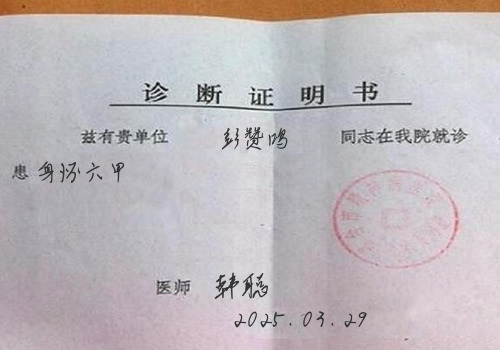 诊断证明书
兹有贵单位 彭赞鸣 同志在我院就诊
患 身怀六甲
医师 韩聪
2025.03.29